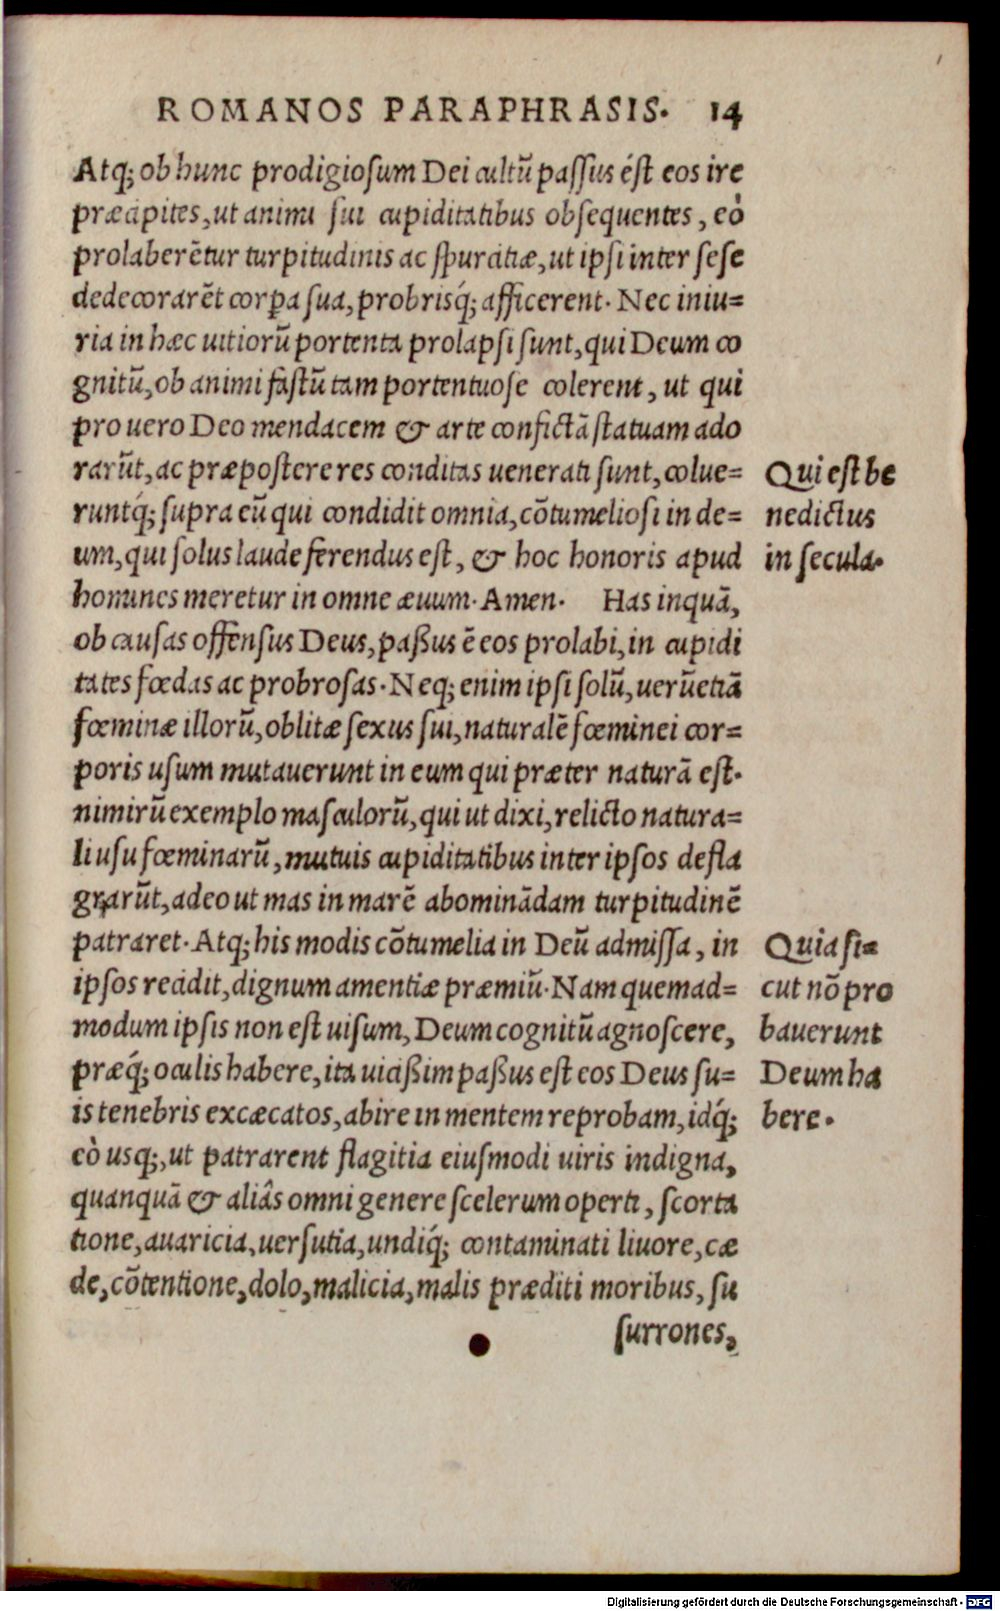 ROMANOS PARAPHRASIS. 14
Atq; ob hunc prodigiosum Dei cultũ passus ést eos ire
præcipites, ut animi sui cupiditatibus obsequentes, eò
prolaberẽtur turpitudinis ac spurcitiæ, ut ipsi inter sese
dedecorarẽt corpa sua, probrisq́; afficerent. Nec iniu=
ria in hæc uitiorũ portenta prolapsi sunt, qui Deum co
gnitũ, ob animi fastũ tam portentuose colerent, ut qui
pro uero Deo mendacem & arte confictã statuam ado
rarũt, ac præpostere res conditas uenerati sunt, colue=
runtq́; supra eũ qui condidit omnia, cõtumeliosi in de=
um, qui solus laude ferendus est, & hoc honoris apud
homines meretur in omne æuum. Amen. Has inquã,
ob causas offensus Deus, paßus ẽ eos prolabi, in cupidi
tates fœdas ac probrosas. Neq; enim ipsi solũ, uerũetiã
fœminæ illorũ, oblitæ sexus sui, naturalẽ fœminei cor=
poris usum mutauerunt in eum qui præter naturã est.
nimirũ exemplo masculorũ, qui ut dixi, relicto natura=
li usu fœminarũ, mutuis cupiditatibus inter ipsos defla
grarũt, adeo ut mas in marẽ abominãdam turpitudinẽ
patraret. Atq; his modis cõtumelia in Deũ admissa, in
ipsos recidit, dignum amentiæ præmiũ. Nam quemad=
modum ipsis non est uisum, Deum cognitũ agnoscere,
præq́; oculis habere, ita uicißim paßus est eos Deus su=
is tenebris excæcatos, abire in mentem reprobam, idq́;
eò usq;, ut patrarent flagitia eiusmodi uiris indigna,
quanquã & aliâs omni genere scelerum operti, scorta
tione, auaricia, uersutia, undiq́; contaminati liuore, cæ
de, cõtentione, dolo, malicia, malis præditi moribus, su
surrones,
Qui est be
nedictus
in secula.
Quia si=
cut nõ pro
bauerunt
Deum ha
bere.
Digitalisierung gefördert durch die Deutsche Forschungsgemeinschaft - DFG